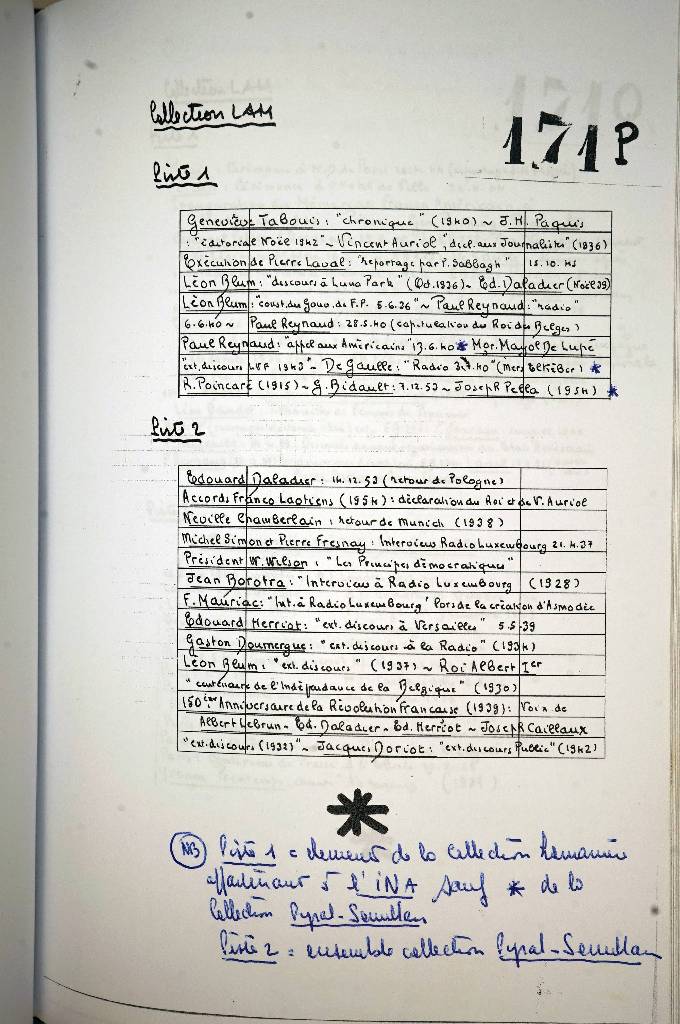 Collection LAM
171P
Piste 1
Geneviève Tabouis : "chronique" (1940) ~ J.H. Paquis
: "éditorial Noël 1942" ~ Vincent Auriol, "décl. aux Journalistes" (1936)
Exécution de Pierre Laval : "reportage par P. Sabbagh" 15.10.45
Léon Blum : "discours à Luna Park" (Oct. 1936) ~ Ed. Daladier (Noël 39)
Léon Blum : "const. du Gouv. de F.P. 5.6.36" ~ Paul Reynaud : "radio"
6.6.40 ~ Paul Reynaud : 28.5.40 (capitulation du Roi des Belges)
Paul Reynaud : "appel aux Américains" 13.6.40 * Mgr. Mayol De Lupé
"ext. discours LVF 1943" ~ De Gaulle : "Radio 3.7.40" (Mers Elkébir) *
R. Poincaré (1915) ~ G. Bidault : 7.12.53 ~ Joseph Pella (1954) *
Piste 2
Edouard Daladier : 14.12.53 (retour de Pologne)
Accords Franco Laotiens (1954) : déclaration du Roi et de V. Auriol
Neville Chamberlain : retour de Munich (1938)
Michel Simon et Pierre Fresnay : Interviews Radio Luxembourg 21.4.37
Président W. Wilson : "Les Principes démocratiques"
Jean Borotra : "Interview à Radio Luxembourg (1928)
F. Mauriac : "Int. à Radio Luxembourg" lors de la création d'Asmodée
Edouard Herriot : "ext. discours à Versailles" 5.5.39
Gaston Doumergue : "ext. discours à la Radio" (1934)
Léon Blum : "ext. discours" (1937) ~ Roi Albert Ier
"centenaire de l'Indépendance de la Belgique" (1930)
150ème Anniversaire de la Révolution Française (1939) : Voix de
Albert Lebrun - Ed. Daladier - Ed. Herriot ~ Joseph Caillaux
"ext. discours (1932)" ~ Jacques Doriot : "ext. discours Public" (1942)
*
NB Piste 1 = élements de la collection
appartenant à l'INA sauf * de la
Collection Pyral-Semullan
Piste 2 = ensemble collection Pyral-Semullan